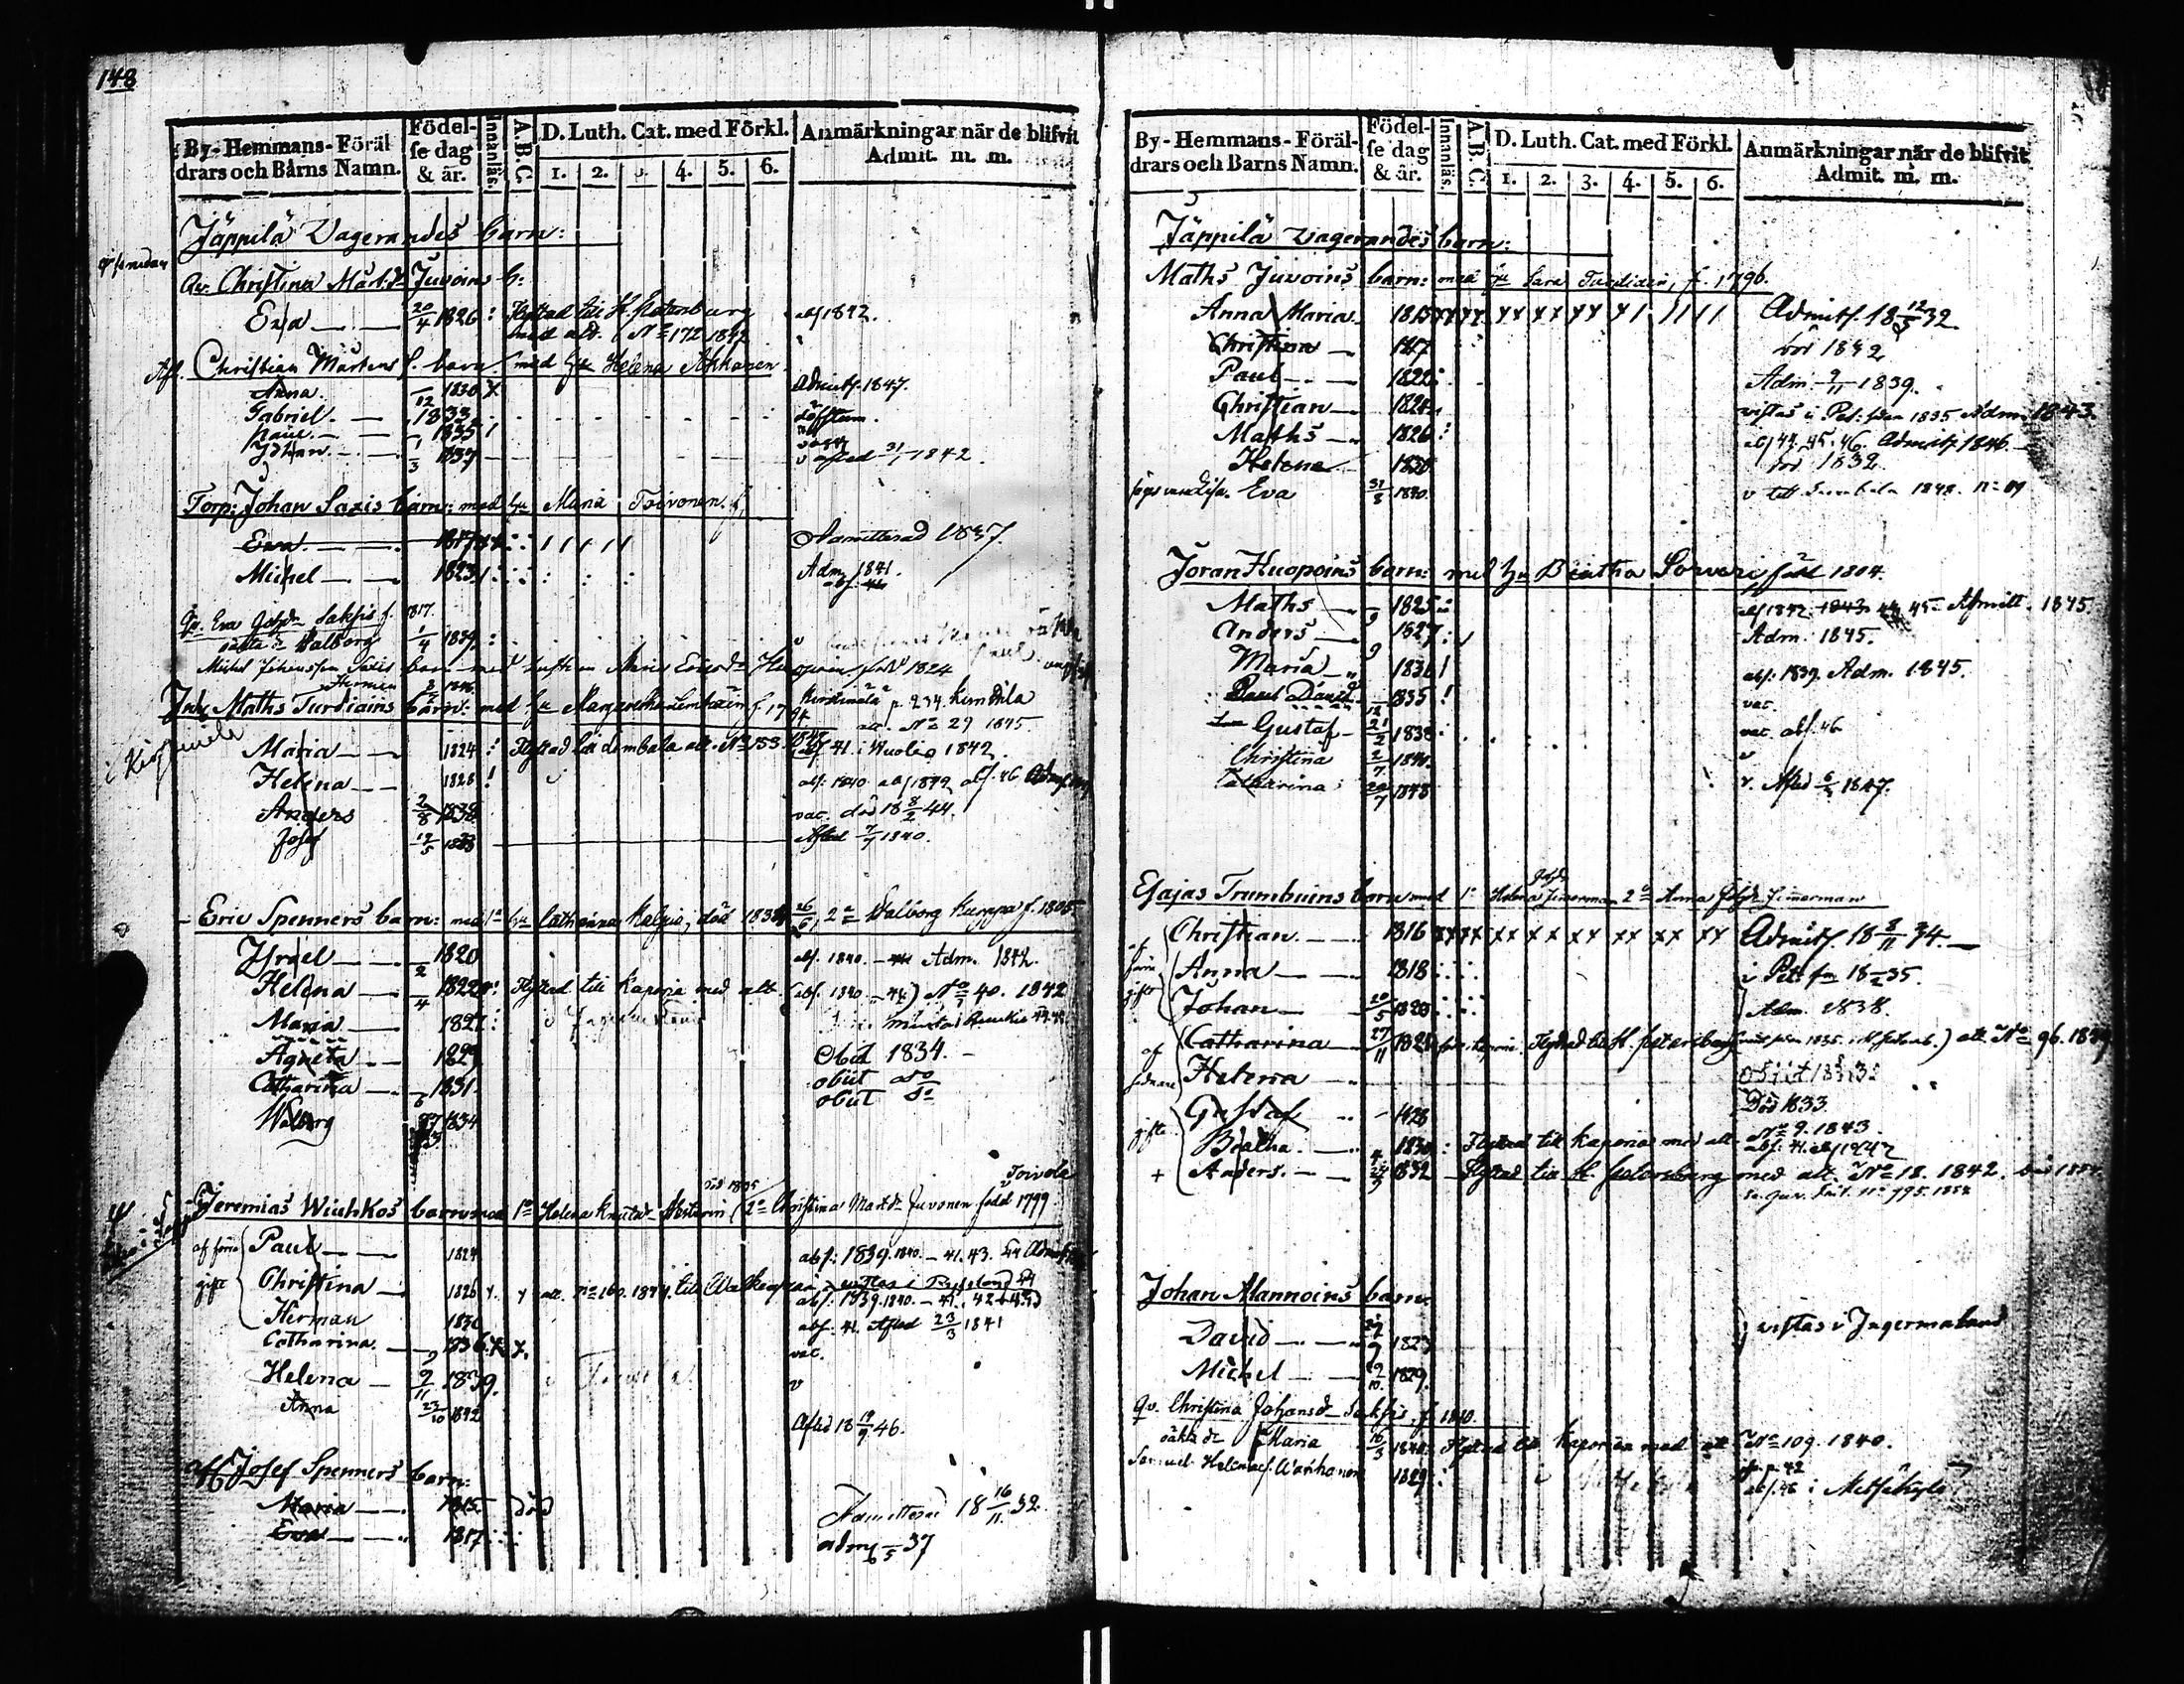 148
By-Hemmans-Föräl
drars och Barns Namn.
Födel-
se dag
& år.
Innanläs.
A.B.C.
D. Luth. Cat. med Förkl.
1. 2. 3. 4. 5. 6.
Anmärkningar när de blifvit
Admit. m. m.
Jäppilä Vagerandes barn:
Qv. Christina Märt:dr Juvoins b:
Eva 20/4 1826 : Flyttad till St Petersburg abs 1842.
med att. No 172 1842
Christian Mårtens s. barn med hu Helena Ahkanen
Anna. /12 1830 X Admits. 1847.
Gabriel. 1833 döfstum.
Paul. 1835
Johan 1/3 1837 v afled 31/1 1842.
Torp: Johan Saxis barn: med hu Maria Toivonen. f.
Eva 1817 Admitterad 1837.
Michel 1823 Adm. 1841.
Qv. Eva Johdr Saksis f. 1817.
oäkta dr Walborg 1/4 1839. v
Michel Johansson Saxis barn med hustrun Maria Ericsdr Huopoin född 1824
Herman 1846.
Inh. Maths Turdiains barn: med hu Margaretha Lemhäin f. 17
att. No 29 1845
Maria 1824 : Flyttad till Sembala att. No 153. 41. i Kuolio 1842.
Helena 1828 ! abs: 1840 abs 1842 abs. 46
Anders 2/8 1838 vac. död 18 8/2 44.
Josef 19/5 1838 Afled 7/7 1840.
Eric Spenners barn: med 1o hu Catharina Kälpiö, död 1838 26/6, 2o Walborg Kuppa f. 1805
Israel /2 1820 abs. 1840. Adm. 1842.
Helena /4 1822 Flyttad till Kaporia med att. (abs. 1840 - 44) No 40. 1842
Maria 1827 :
Agneta 1829 Obiit 1834.
Catharina 1831. obiit do
Walborg 27 1834 obiit do
Jeremias Wiuhkos barn med 1o Helena Knutsdr Hesterin (död 1835 2o Christina Martdr Juvonen född 1799
Toivola
af förra gifte
Paul 1824 abs: 1839. 1840. - 41. 43. 44
Christina 1826 x. x att. No 160. 1844. till Walkeasaari
abs: 1839. 1840. - 41. 42
Herman 1830 abs. 41. Afled 23/3 1841
Catharina /9 1836. x x. vac.
Helena 9/11 1839. v
Anna 23/10 1842 Afled 18 19/9 46.
Josef Spenners barn:
Maria 1815 död Admitterad 18 16/11 32.
Eva 1817 adm /5 37
By-Hemmans-Föräl-
drars och Barns Namn.
Födel-
se dag
& år.
Innanläs.
A.B.C.
D. Luth. Cat. med Förkl.
1. 2. 3. 4. 5. 6.
Anmärkningar när de blifvit
Admit. m. m.
Jäppilä Vagerandes barn:
Maths Juvoins barn: med hu Sara Turdidin, f. 1796.
Anna Maria 1815 xx xx xx xx xx x1 11 11 Admits. 18 12/5 32
Christina 1817 död 1842
Paul 1822 : Adm 9/11 1839.
Christian 1824 vistas i Pet: sedan 1835 Adm. 1843.
Maths 1826 : abs 44. 45. 46. Admits 1846.
Helena 1830 död 1832.
Eva 31/8 1840. v till Sembala 1848. No 49
Jöran Huopoins barn: med hu Beatha Sorvari född 1804.
Maths 1825 abs 1842. 1843. 44. 45 Admitt. 1845.
Anders /9 1827 : Adm. 1845.
Maria /9 1830 ! abs: 1839. Adm. 1845.
David /12 1835 ! vac.
Gustaf 21/2 1838 : vac. abs. 46
Christina 2/7 1841. v
Catharina 20/7 1843 v. Afled 6/5 1847.
Esajas Trumbuins barn med 1o Helena Johdr Zimerman 2o Anna Johdr Zimerman
af förra gifte
Christian 1816 xx xx xx xx xx xx xx xx Admits. 18 8/11 34.
Anna 1818 : i Pet: fr 18 /2 35.
Johan 20/5 1820 : Adm. 1838.
af sednare gifte
Catharina 27/11 1821 Flyttad till St. Petersburg att No 96. 1839
Helena obiit 18
Gustaf 1828 Död 1833.
Beatha /4 1830 : Flyttad till Kaporia med att No 9. 1843
abs. 41. abs 1842
+ Anders. 24/9 1832 Flyttad till St. Petersburg med att. No 18. 1842.
Johan Mannoins barn:
David /9 1823 vistas i Ingermaland
Michel 2/10. 1829.
Qv. Christina Johansdr Saksis f. 1810.
oäkta dr Maria 16/3 1840 Flyttad till Kaporia med att No 109. 1840.
Samuel 1829 : abs. 46 i Metsäkylä